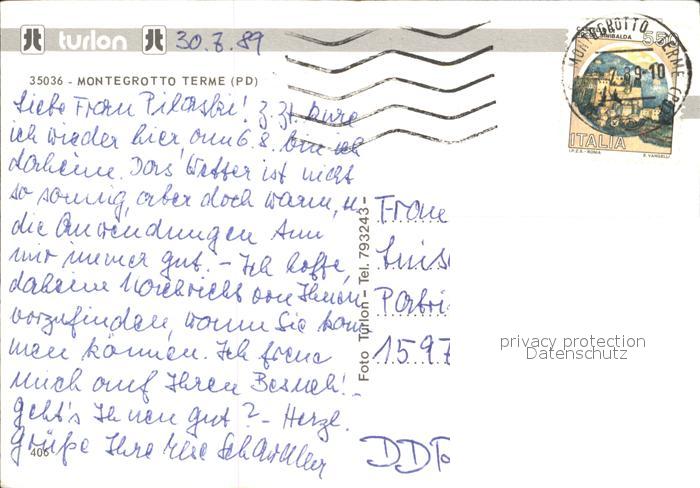 turlon 30.7.89
35036 - MONTEGROTTO TERME (PD)
Liebe Frau Pilarski! Z. Zt. kure
ich wieder hier, am 6.8. bin ich
daheim. Das Wetter ist nicht
so sonnig, aber doch warm, u.
die Anwendungen tun
mir immer gut. - Ich hoffe,
daheim Nachricht von Ihnen
vorzufinden, wann Sie kom
men können. Ich freue
mich auf Ihren Besuch! -
Geht's Ihnen gut? - Herzl.
Grüße Ihre
406
Foto Turlon - Tel. 793243 -
MONTEGROTTO TERME (PD)
89-10
550
SINIBALDA
ITALIA
I.P.Z.S. - ROMA E. VANGELLI
Frau
Luis
Patri
1597
DDR
privacy protection
Datenschutz